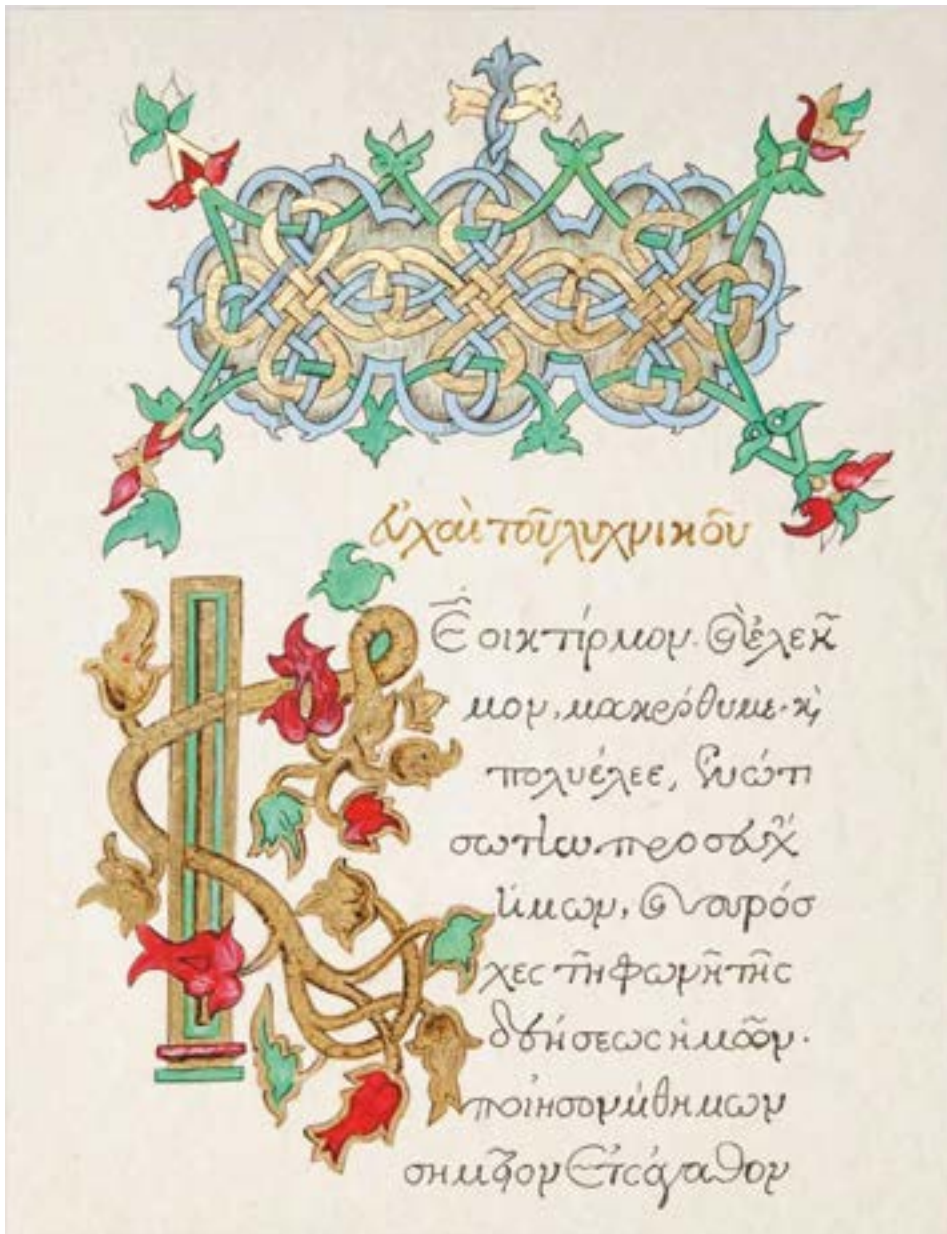 εὐχαὶ τοῦ λυχνικοῦ
Κε οἰκτίρμον. καὶ ἐλεῆ
μον, μακρόθυμε. κὶ
πολυέλεε, ἐνώτι
σω τὴν προσευχ
ἡμῶν, καὶ πρόσ
χες τῇ φωνῇ τῆς
δεήσεως ἡμῶν.
ποίησον μεθημων
σημεῖον εἰς ἀγαθον